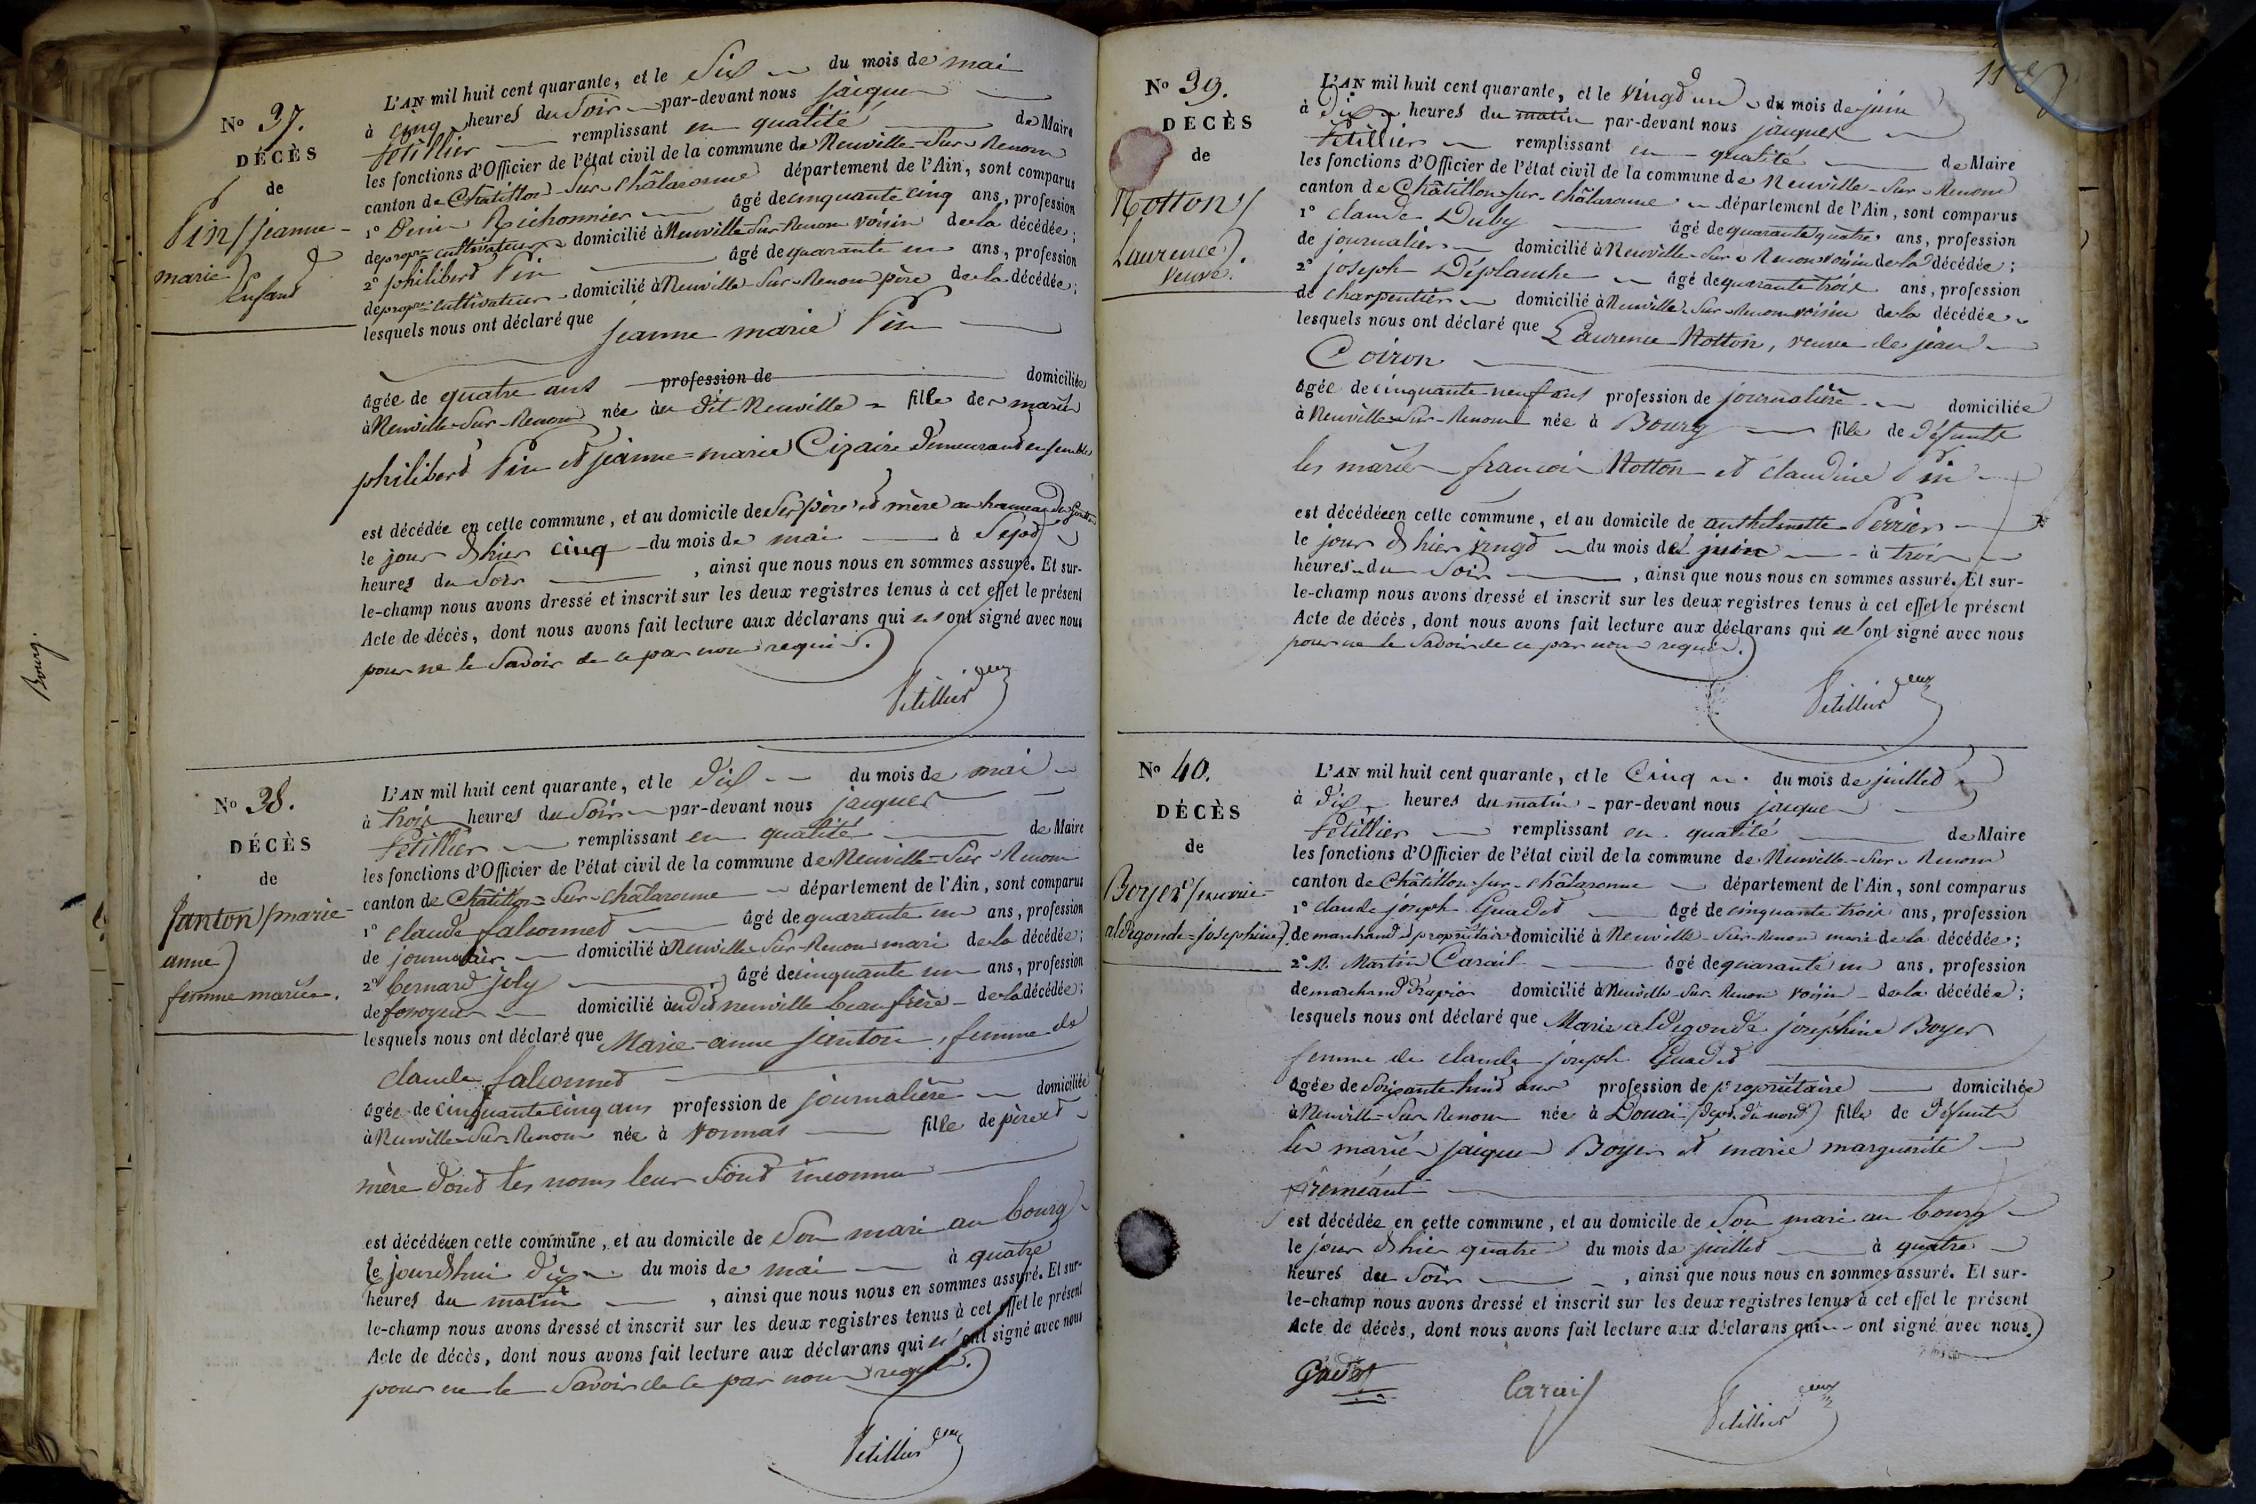 Bourg.
No 37.
DÉCÈS
de
Pin / jeanne-
marie)
Enfant
L'AN mil huit cent quarante, et le Six du mois de mai
à cinq heures du Soir par-devant nous jacques
Petillier remplissant en qualité de Maire
les fonctions d'Officier de l'état civil de la commune de Neuville-Sur-Renom
canton de Châtillon-Sur-Châlaronne département de l'Ain, sont comparus
1º Denis Richonnier âgé de cinquante cinq ans, profession
de propre cultivateur domicilié à Neuville Sur Renom voisin de la décédée;
2º philibert Pin âgé de quarante un ans, profession
de propre cultivateur domicilié à Neuville-Sur-Renom père de la décédée;
lesquels nous ont déclaré que jeanne marie Pin
âgée de quatre ans profession de domiciliée
à Neuville-Sur-Renom née au dit Neuville fille de mariés
philibert Pin et jeanne=marie Cizaire demeurant ensemble
est décédée en cette commune, et au domicile de Ses père et mère au hameau
le jour d'hier cinq du mois de mai à Sept
heures du Soir, ainsi que nous nous en sommes assuré. Et sur-
le-champ nous avons dressé et inscrit sur les deux registres tenus à cet effet le présent
Acte de décès, dont nous avons fait lecture aux déclarans qui n'ont signé avec nous
pour ne le Savoir de ce par nous requis.
Petillier
No 38.
DÉCÈS
de
Janton / marie-
anne)
femme mariée.
L'AN mil huit cent quarante, et le dix du mois de mai
à trois heures du Soir par-devant nous jacques
Petillier remplissant en qualité de Maire
les fonctions d'Officier de l'état civil de la commune de Neuville-Sur-Renom
canton de Châtillon-Sur-Châlaronne département de l'Ain, sont comparus
1º claude falconnet âgé de quarante un ans, profession
de journalier domicilié à Neuville-Sur-Renom mari de la décédée;
2º bernard joly âgé de cinquante un ans, profession
de fossoyeur domicilié au dit neuville beau frère de la décédée;
lesquels nous ont déclaré que Marie-anne janton, femme de
claude falconnet
âgée de cinquante cinq ans profession de journalière domiciliée
à Neuville-Sur-Renom née à vonnas fille de père et
mère dont les noms leur Sont inconnu
est décédée en cette commune, et au domicile de Son mari au bourg
le jourd'hui dix du mois de mai à quatre
heures du matin, ainsi que nous nous en sommes assuré. Et sur-
le-champ nous avons dressé et inscrit sur les deux registres tenus à cet effet le présent
Acte de décès, dont nous avons fait lecture aux déclarans qui n'ont signé avec nous
pour ne le Savoir de ce par nous requis.
Petillier
No 39.
DECÈS
de
Notton /
Laurence).
veuve.
L'AN mil huit cent quarante, et le vingt un du mois de juin
à dix heures du matin par-devant nous jacques
Petillier remplissant en qualité de Maire
les fonctions d'Officier de l'état civil de la commune de Neuville-Sur-Renom
canton de Châtillon-Sur-Châlaronne département de l'Ain, sont comparus
1º claude Duby âgé de quarante quatre ans, profession
de journalier domicilié à Neuville-Sur-Renom voisin de la décédée;
2º joseph Déplanche âgé de quarante trois ans, profession
de charpentier domicilié à Neuville-Sur-Renom voisin de la décédée
lesquels nous ont déclaré que Laurence Notton, veuve de jean
Coiron
âgée de cinquante neuf ans profession de journalière domiciliée
à Neuville-Sur-Renom née à Bourg fille de défunts
les mariés francois Notton et claudine Pin
est décédée en cette commune, et au domicile de anthelmette Perrier
le jour d'hier vingt du mois de juin à trois
heures du Soir, ainsi que nous nous en sommes assuré. Et sur-
le-champ nous avons dressé et inscrit sur les deux registres tenus à cet effet le présent
Acte de décès, dont nous avons fait lecture aux déclarans qui n'ont signé avec nous
pour ne le Savoir de ce par nous requis.
Petillier
No 40.
DÉCÈS
de
Boyer / marie-
aldegonde=josephine)
L'AN mil huit cent quarante, et le Cinq du mois de juillet
à dix heures du matin par-devant nous jacques
Petillier remplissant en qualité de Maire
les fonctions d'Officier de l'état civil de la commune de Neuville-Sur-Renom
canton de Châtillon-sur-Châlaronne département de l'Ain, sont comparus
1º claude joseph Guadet âgé de cinquante trois ans, profession
de marchand et propriétaire domicilié à Neuville-Sur-Renom mari de la décédée;
2º Martin Carail âgé de quarante un ans, profession
de marchand drapier domicilié à Neuville-Sur-Renom voisin de la décédée;
lesquels nous ont déclaré que Marie aldegonde joséphine Boyer
femme de claude joseph Guadet
âgée de Soixante huit ans profession de propriétaire domiciliée
à Neuville-Sur-Renom née à Douai (dépt. du nord) fille de défunts
les mariés jacques Boyer et marie marguerite
est décédée en cette commune, et au domicile de Son mari au bourg
le jour d'hier quatre du mois de juillet à quatre
heures du Soir, ainsi que nous nous en sommes assuré. Et sur-
le-champ nous avons dressé et inscrit sur les deux registres tenus à cet effet le présent
Acte de décès, dont nous avons fait lecture aux déclarans qui ont signé avec nous.
Gadet Carail Petillier